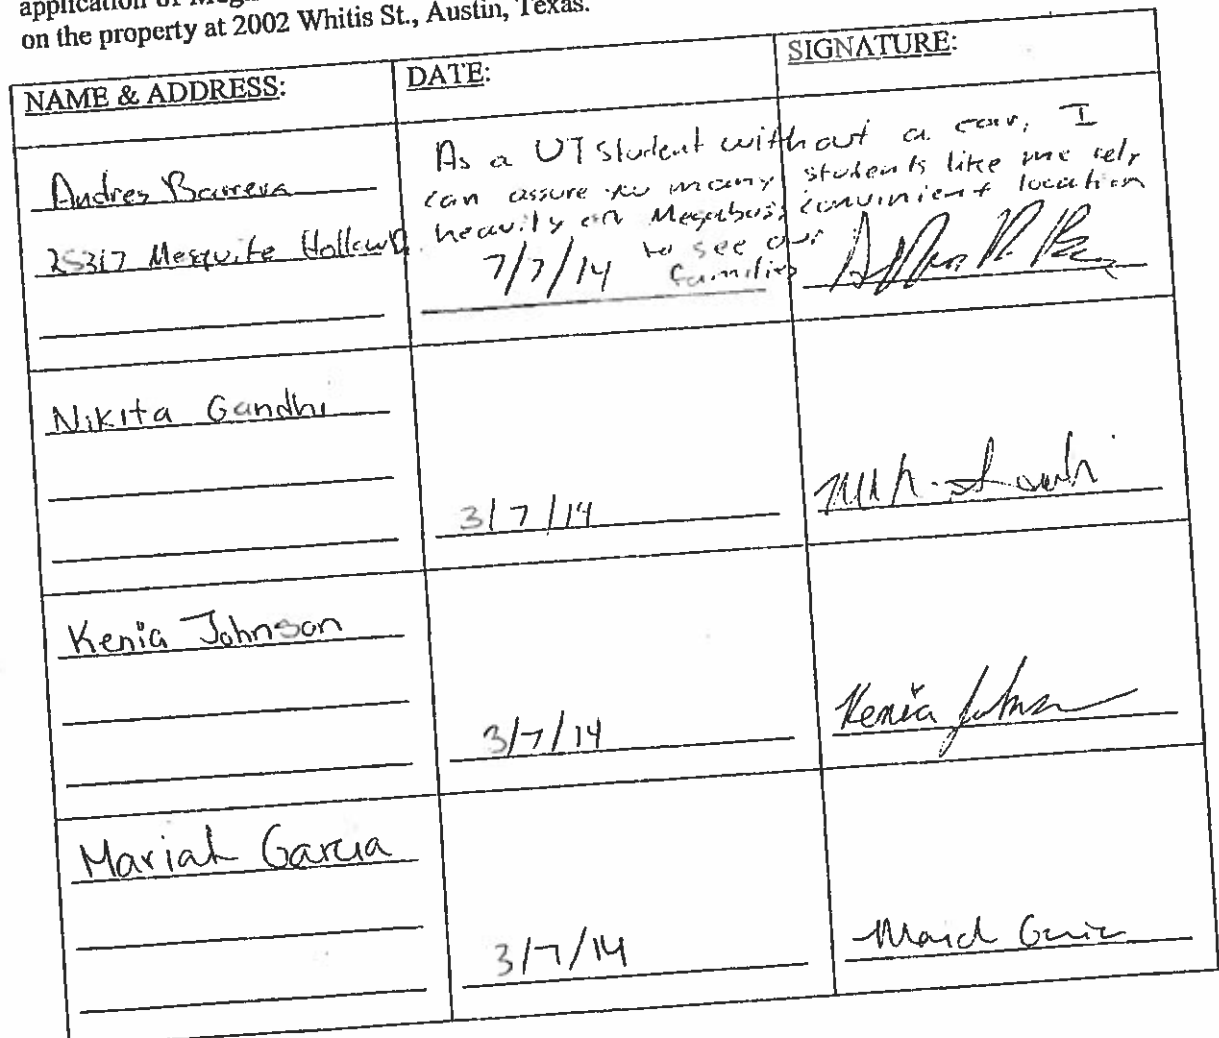 application of
on the property at 2002 Whitis St., Austin, Texas.
NAME & ADDRESS:
DATE:
SIGNATURE:
Andres Barrera
25317 Mesquite Hollow
As a UT student without a car, I
can assure you many students like me rely
heavily on Megabus's convinient location
to see our
7/7/14
families
Nikita Gandhi
3/7/14
Kenia Johnson
3/7/14
Kenia Johnson
Mariah Garcia
3/7/14